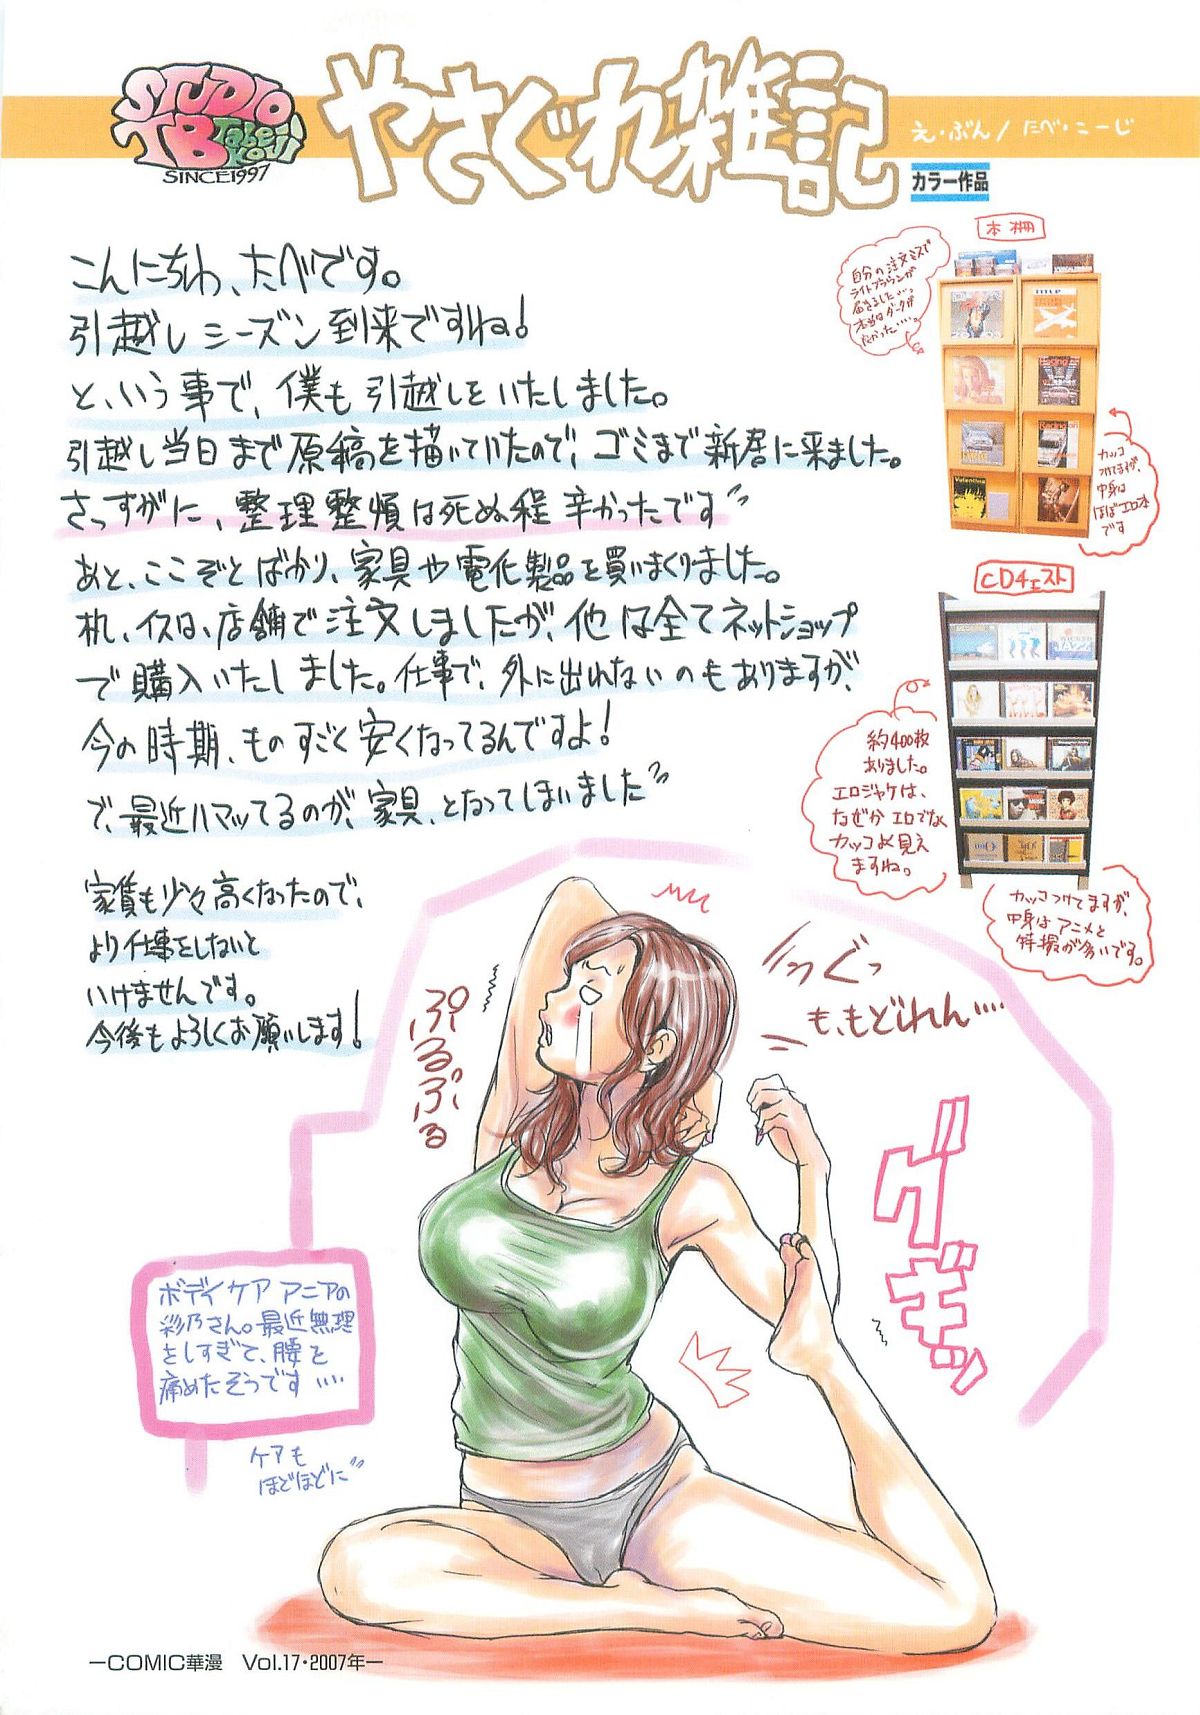 STUDIO
TB Tabe Koji
SINCE1997
やさぐれ雑記
え・ぶん/たべ・こーじ
カラー作品
こんにちわ、たべです。
引越しシーズン到来ですね!
と、いう事で、僕も引越しをいたしました。
引越し当日まで原稿を描いていたので、ゴミまで新居に来ました。
さっすがに、整理整頓は死ぬ程辛かったです
あと、ここぞとばかり、家具や電化製品を買いまくりました。
机、イスは、店舗で注文しましたが、他は全てネットショップ
で購入いたしました。仕事で、外に出れないのもありますが、
今の時期、ものすごく安くなってるんですよ!
で、最近ハマッてるのが、家具、となってしまいました
家賃も少々高くなったので、
より仕事をしないと
いけませんです。
今後もよろしくお願いします!
本棚
自分の注文ミスで
ライトブラウンが
届きました…
本当はダークが
良かった….
カッコ
つけてますが、
中身は
ほぼエロ本
です
CDチェスト
WICKED
JAZZ
約400枚
ありました。
エロジャケは、
なぜかエロでなく
カッコよく見え
ますね。
カッコつけてますが、
中身はアニメと
特撮が多いです。
ぷるぷる
っぐっ
も、もどれん….
グギッ
ボディケア アニアの
彩乃さん。最近無理
をしすぎて、腰を
痛めたそうです….
ケアも
ほどほどに
—COMIC華漫 Vol.17・2007年—